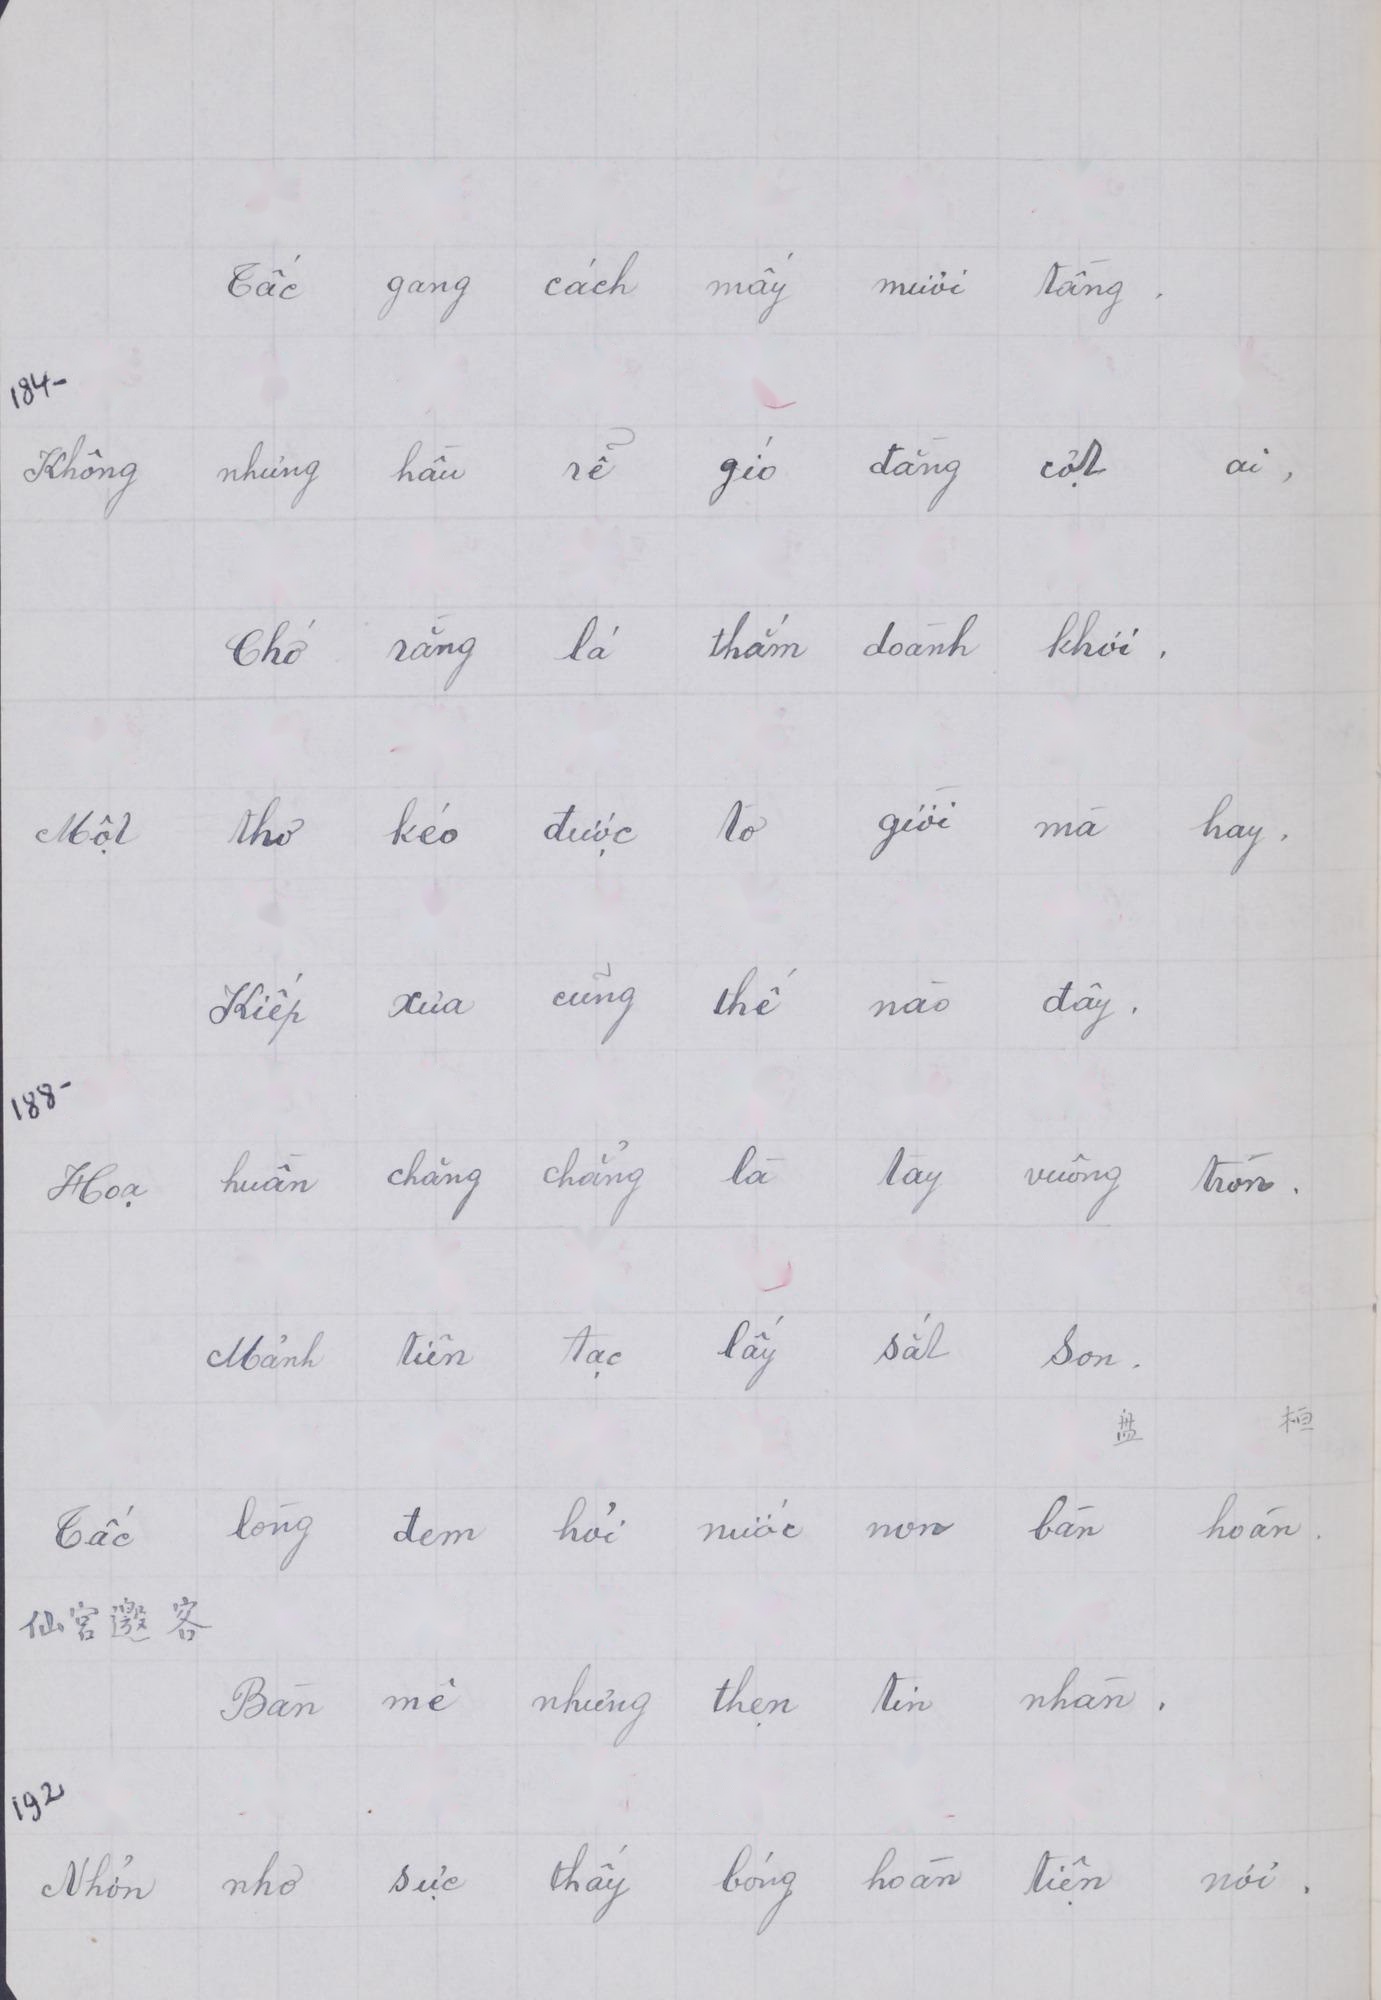 Tấc gang cách mấy mươi tầng.
184-
Không nhưng hầu rễ gió đằng cợt ai,
Chớ rằng lá thắm doành khơi.
Một thơ kéo được tơ giời mà hay.
Kiếp xưa cũng thế nào đây.
188-
Hoạ huần chăng chẳng là tay vuông tròn.
Mảnh tiên tạc lấy sắt son.
盘 桓
Tấc lòng đem hỏi nước non bàn hoàn.
仙宮邀客
Bàn mê nhưng thẹn tin nhàn.
192
Nhởn nhơ sực thấy bóng hoàn tiện nơi.